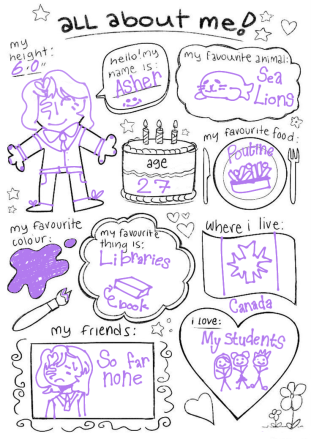 all about me!
my
height:
6'0"
hello! my
name is:
Asher
my favourite animal:
Sea
Lions
age
27
my favourite food:
Poutine
my favourite
colour:
my favourite
thing is:
Libraries
ebook
where i live:
Canada
my friends:
So far
none
i love:
My students